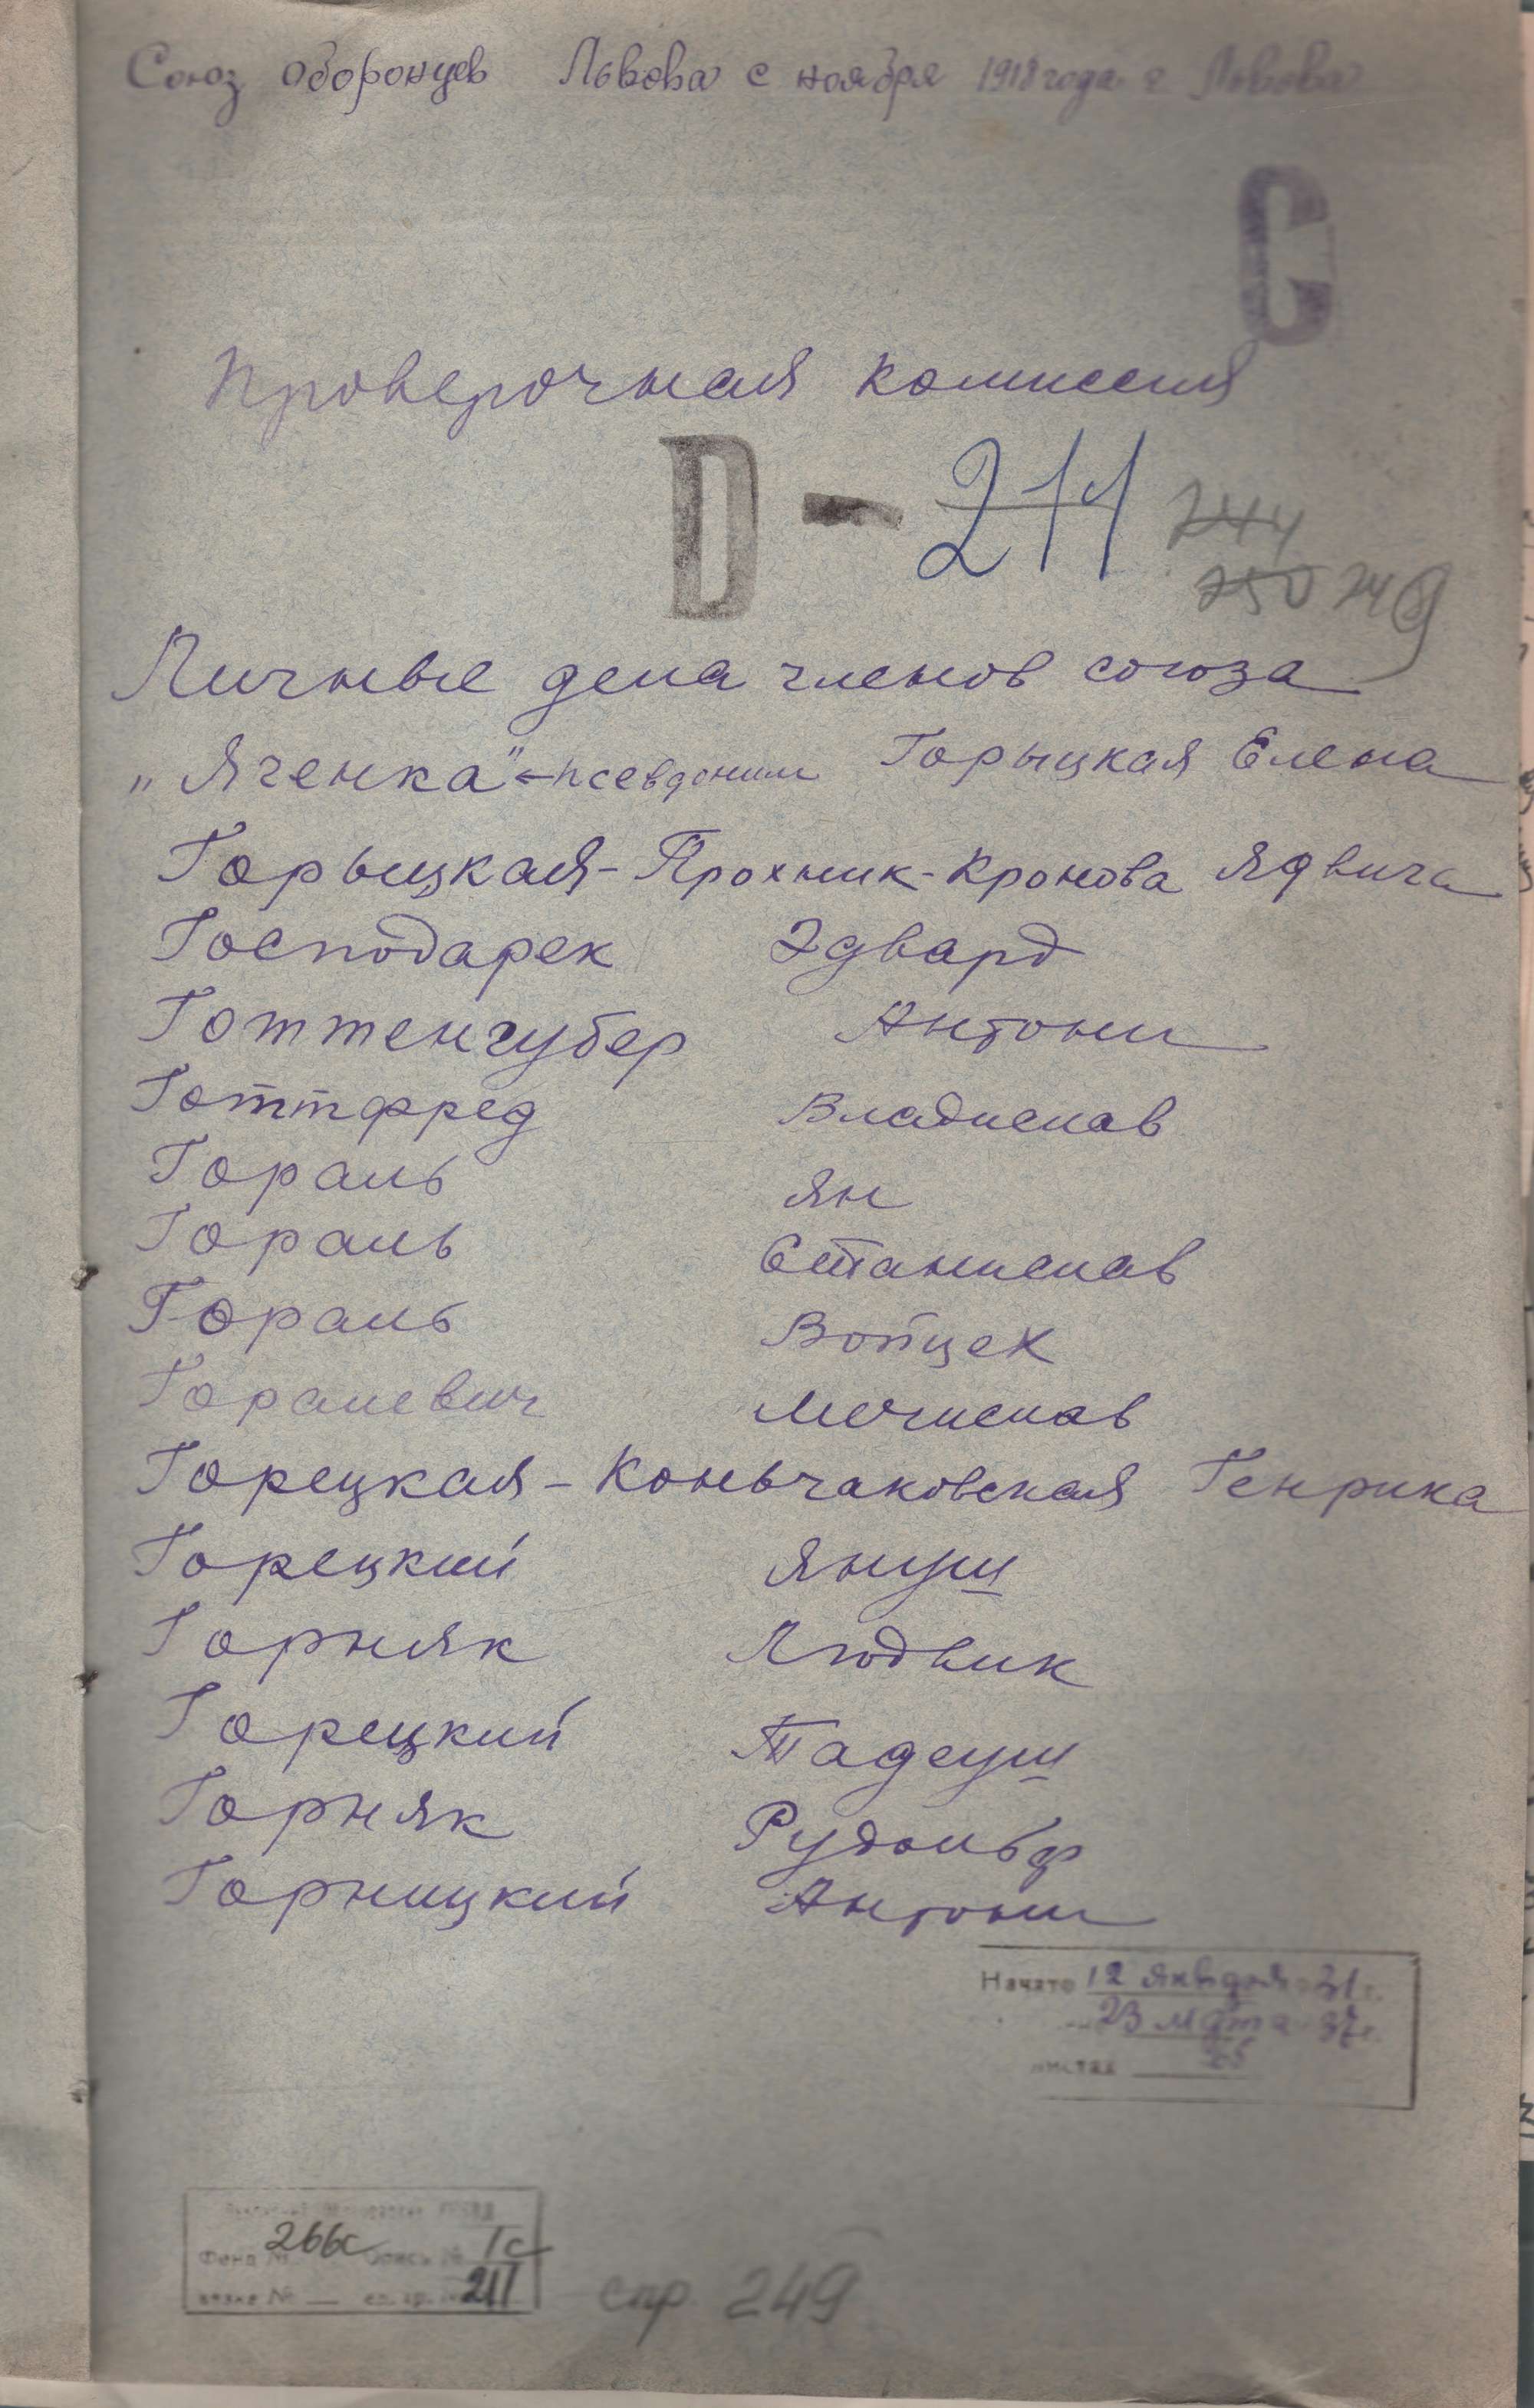 Союз оборонцев Львова с ноября 1918 года г. Львова
С
Проверочная комиссия
D - 211 244
250 249
Личные дела членов союза
„Яченка" - псевдоним Горыцкая Елена
Горыцкая - Прохник - Кронова Ядвига
Господарек Эдвард
Готтенгубер Антони
Готтфред Владислав
Гораль Ян
Гораль Станислав
Гораль Войцех
Горалевич Мечислав
Горецкая - Коньчаковская Генрика
Горецкий Януш
Горняк Людвик
Горецкий Тадеуш
Горняк Рудольф
Горницкий Антони
Начато 12 января 31 г.
23 марта 37 г.
листах
Фонд № 266с Опись № 1с
вязке № ед. хр. 211
спр. 249